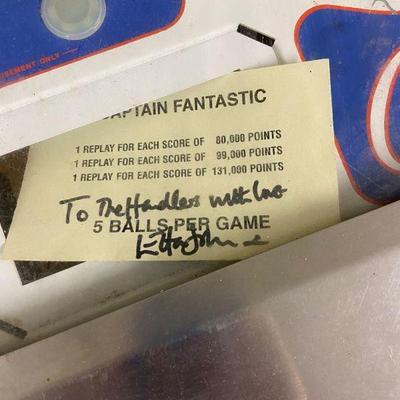 USEMENT ONLY —
CAPTAIN FANTASTIC
1 REPLAY FOR EACH SCORE OF 80,000 POINTS
1 REPLAY FOR EACH SCORE OF 99,000 POINTS
1 REPLAY FOR EACH SCORE OF 131,000 POINTS
To The Handlers with love
5 BALLS PER GAME
Elton John